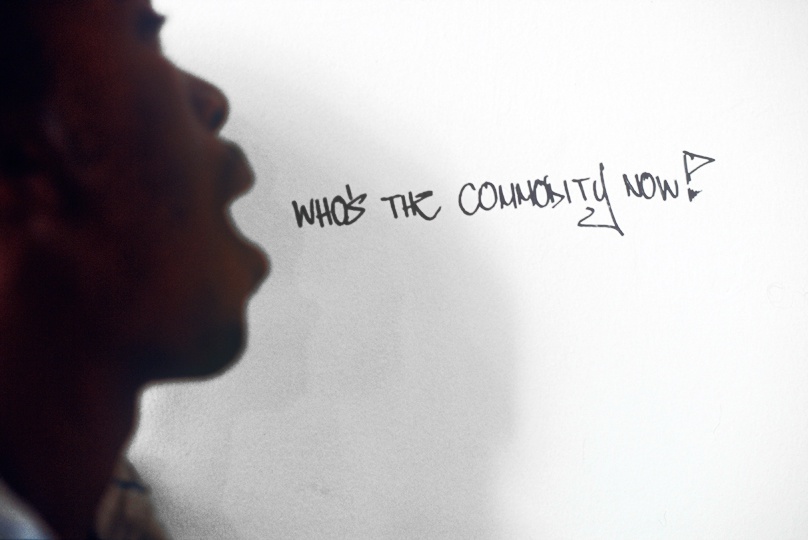 WHO'S THE COMMODITY NOW!?